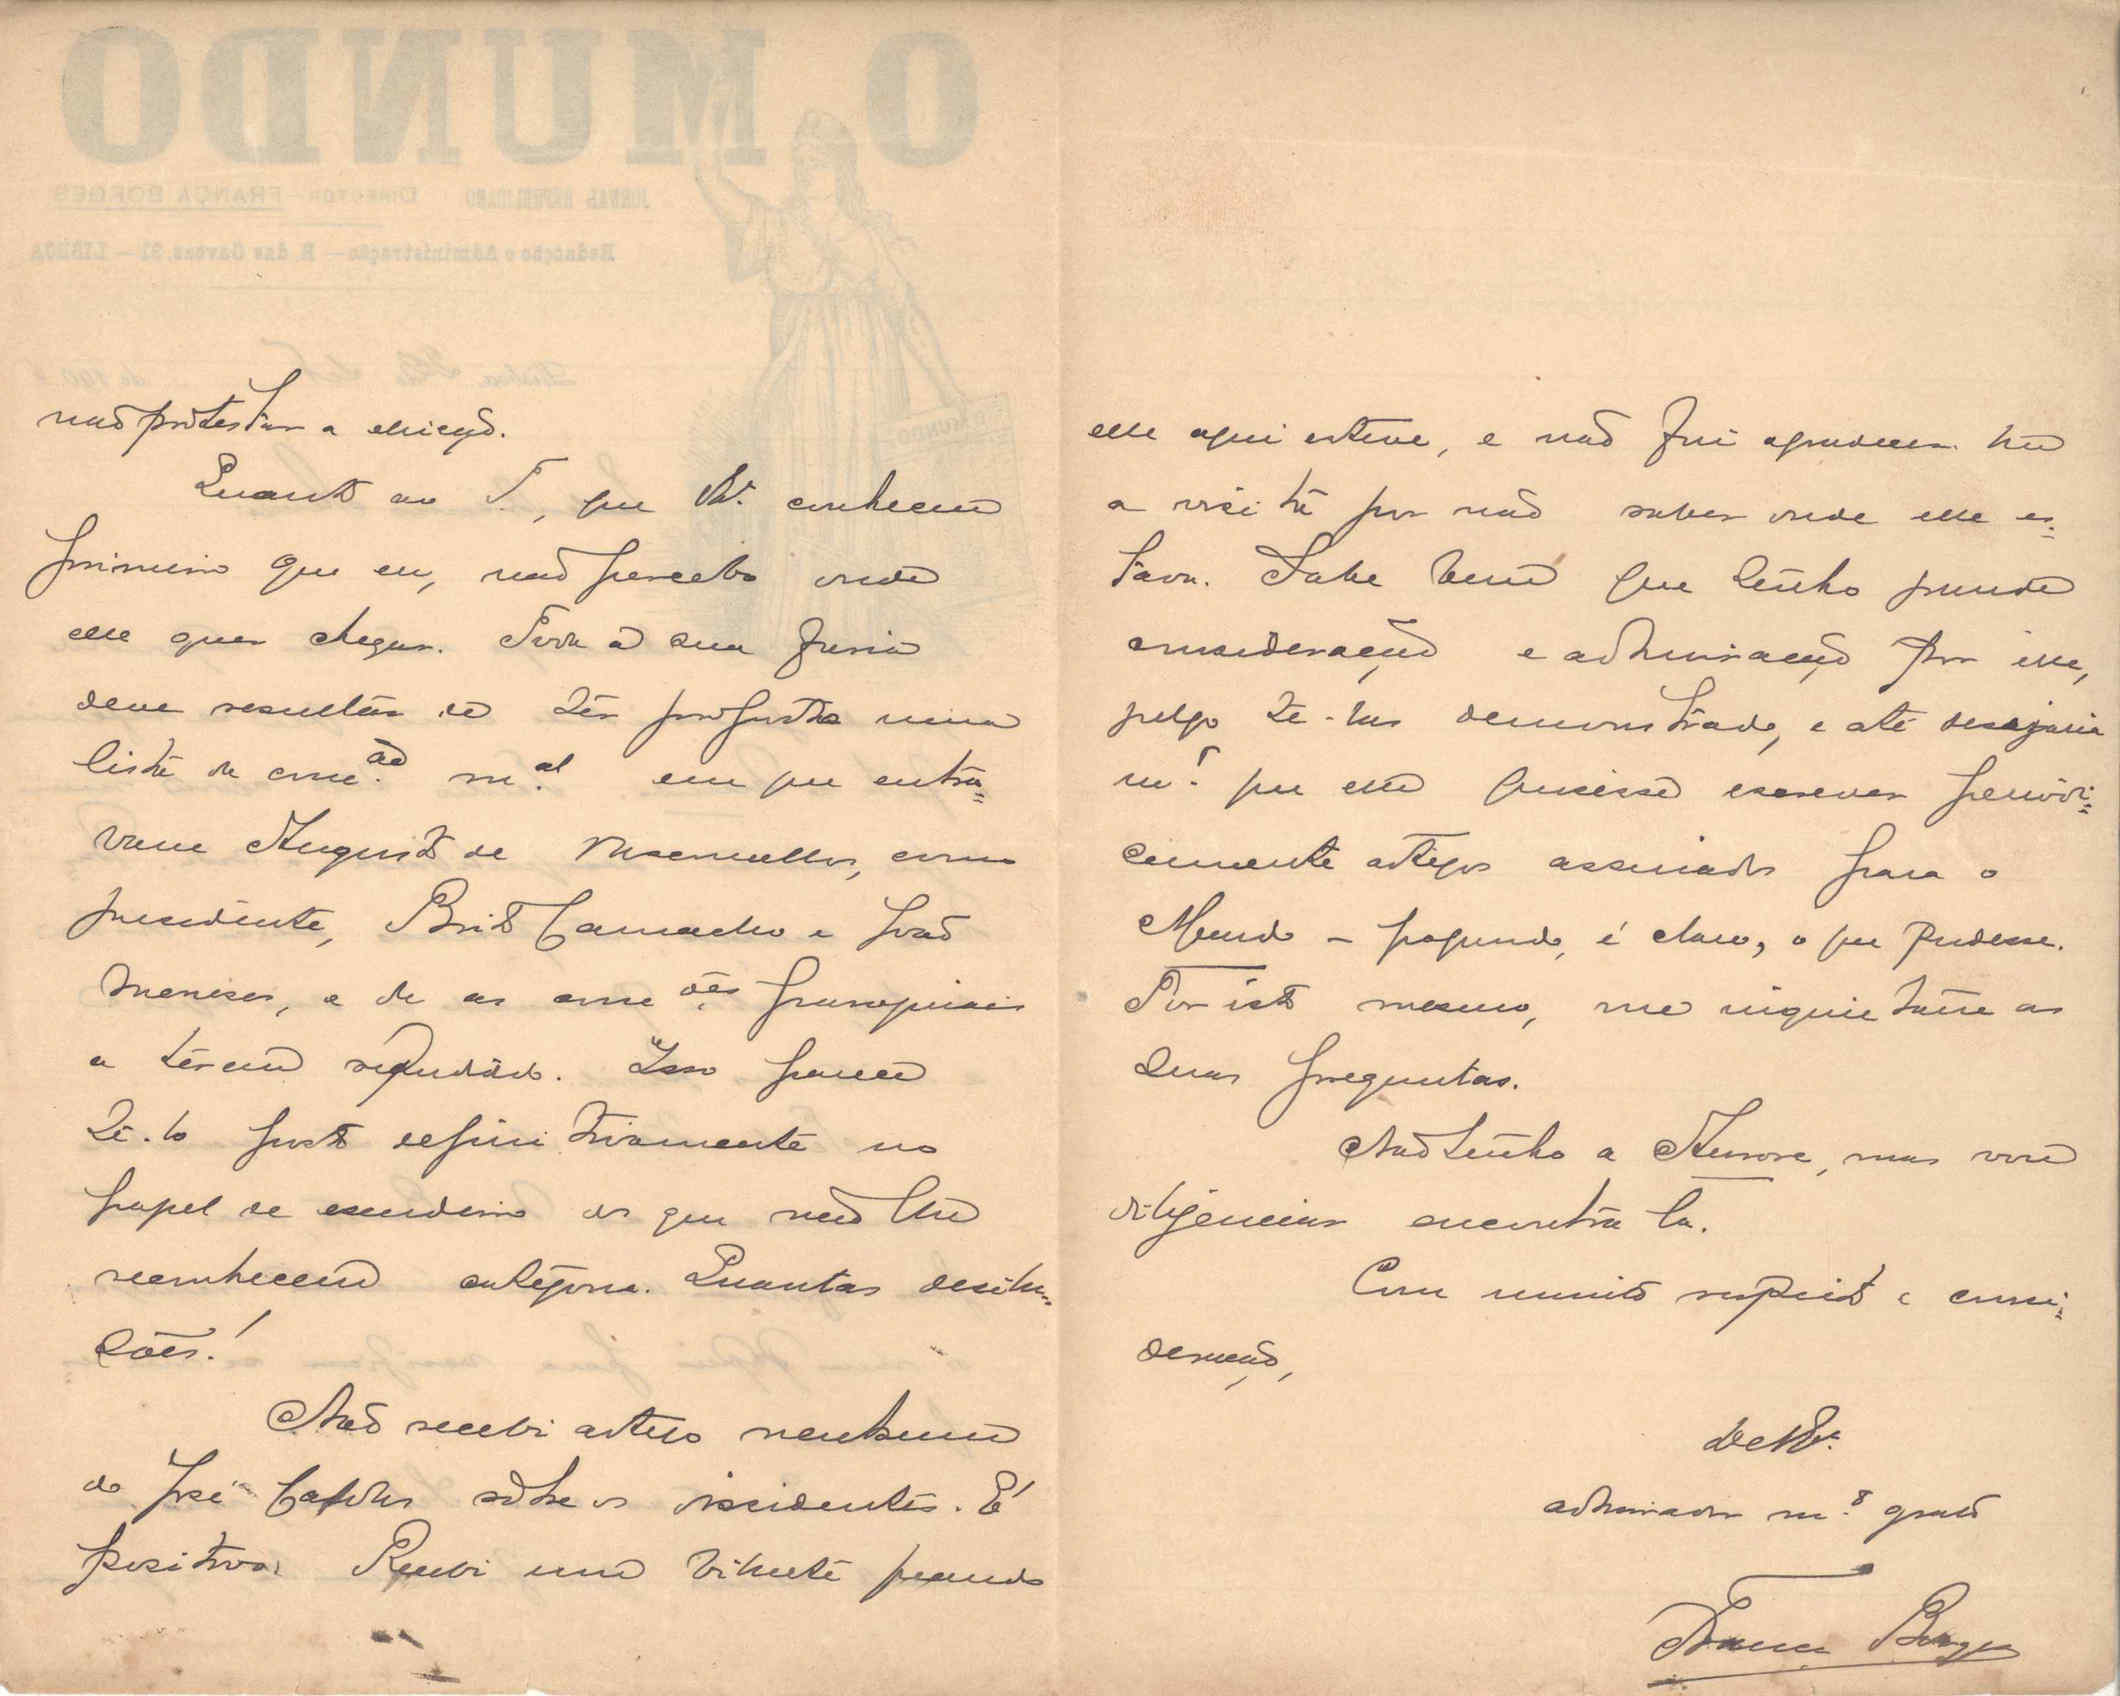 O MUNDO
JORNAL REPUBLICANO DIRECTOR—FRANÇA BORGES
Redacção e Administração—R. das Gaveas, 31—LISBOA
não protestar a eleição.
Quanto ao T., que V. conheceu
primeiro que eu, não percebo onde
elle quer chegar. Toda a sua furia
deve resultar de ter proposto uma
lista da com.ão m.al em que entra=
vam Augusto de Vasconcellos, como
presidente, Brito Camacho e João
Meneses, e de as com.ões paroquiais
a terem repudiado. Isso parece
tê-lo posto definitivamente no
papel de escudeiro dos que não lhe
reconhecem categoria. Quantas desilu=
sões!
Não recebi artigo nenhum
do José Caldas sobre os dissidentes. É
positivo. Recebi um bilhete quando
elle aqui esteve, e não fui agradecer-lhe
a visita por não saber onde elle es=
tava. Sabe bem que tenho grande
consideração e admiração por elle,
julgo tê-las demonstrado, e até desejaria
m.º que elle quisesse escrever periodi=
camente artigos assinados para o
Mundo – pagando, é claro, o que pudesse.
Por isto mesmo, me inquietam as
suas preguntas.
Não tenho a Aurore, mas vou
diligenciar encontrá-la.
Com muito respeito e consi=
deração,
De V. Ex.ª
admirador m.º grato
França Borges